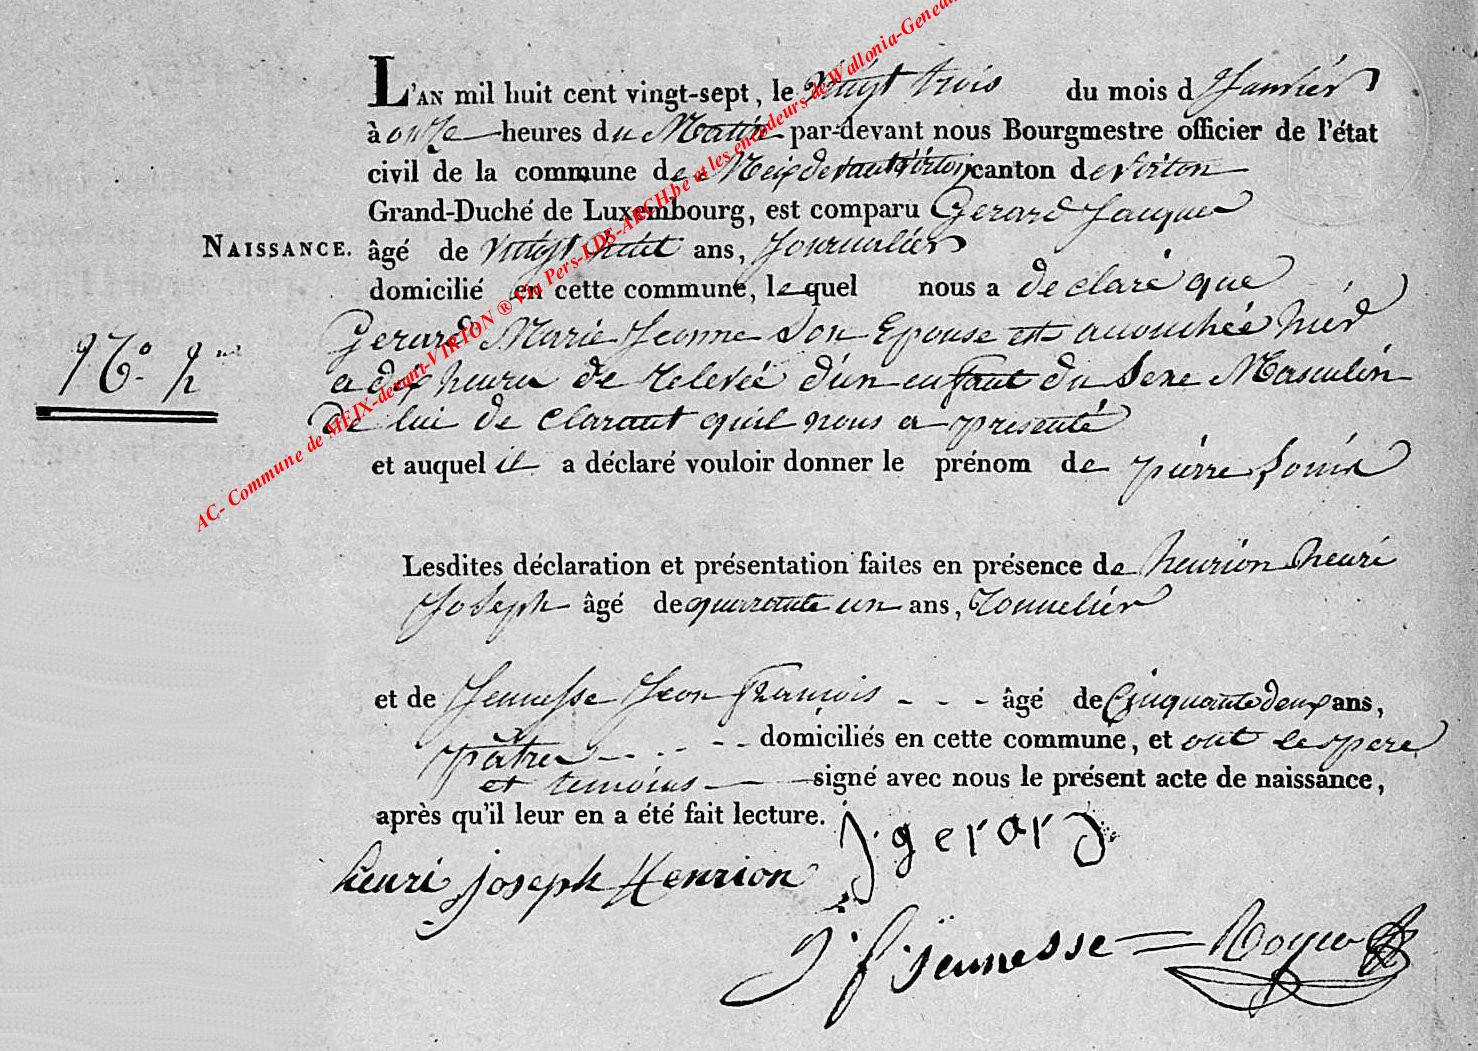 AC- Commune de MEIX-devant-VIRTON ® Via Pers-LDS-ARCH.be et les encodeurs de Wallonia-Geneal
L'AN mil huit cent vingt-sept, le vingt trois du mois d Janvier
à onze heures du Matin par-devant nous Bourgmestre officier de l'état
civil de la commune de Meix devant Virton canton de Virton
Grand-Duché de Luxembourg, est comparu Gerard Jacques
NAISSANCE. âgé de vingt huit ans, Journalier
domicilié en cette commune, lequel nous a declaré que
Gerard Marie Jeanne Son Epouse est accouchée hier
N.o 2
a dix heures de relevée d'un enfant du Sexe Masculin
de lui declarant qu'il nous a presenté
et auquel il a déclaré vouloir donner le prénom de pierre Louis
Lesdites déclaration et présentation faites en présence de henrion henri
Joseph âgé de quarante un ans, Tonnelier
et de Jeunesse Jean François - - - âgé de Cinquante deux ans,
pâtre - - - - domiciliés en cette commune, et ont le pere
et temoins signé avec nous le présent acte de naissance,
après qu'il leur en a été fait lecture. j. gerard
henri joseph Henrion
J. f. jeunesse = Royer